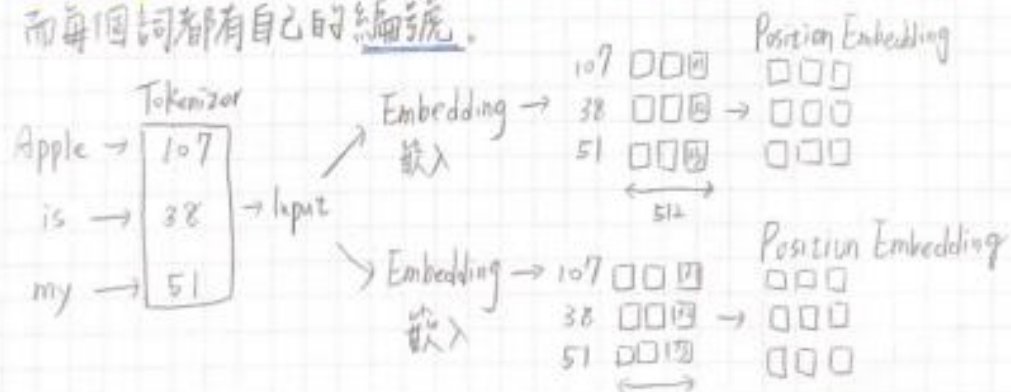 而每個詞都有自己的編號。
Tokenizer
Apple → 107
is → 38
my → 51
→ Input
Embedding →
嵌入
107
38
51
512
→
Position Embedding
Embedding →
嵌入
107
38
51
→
Position Embedding